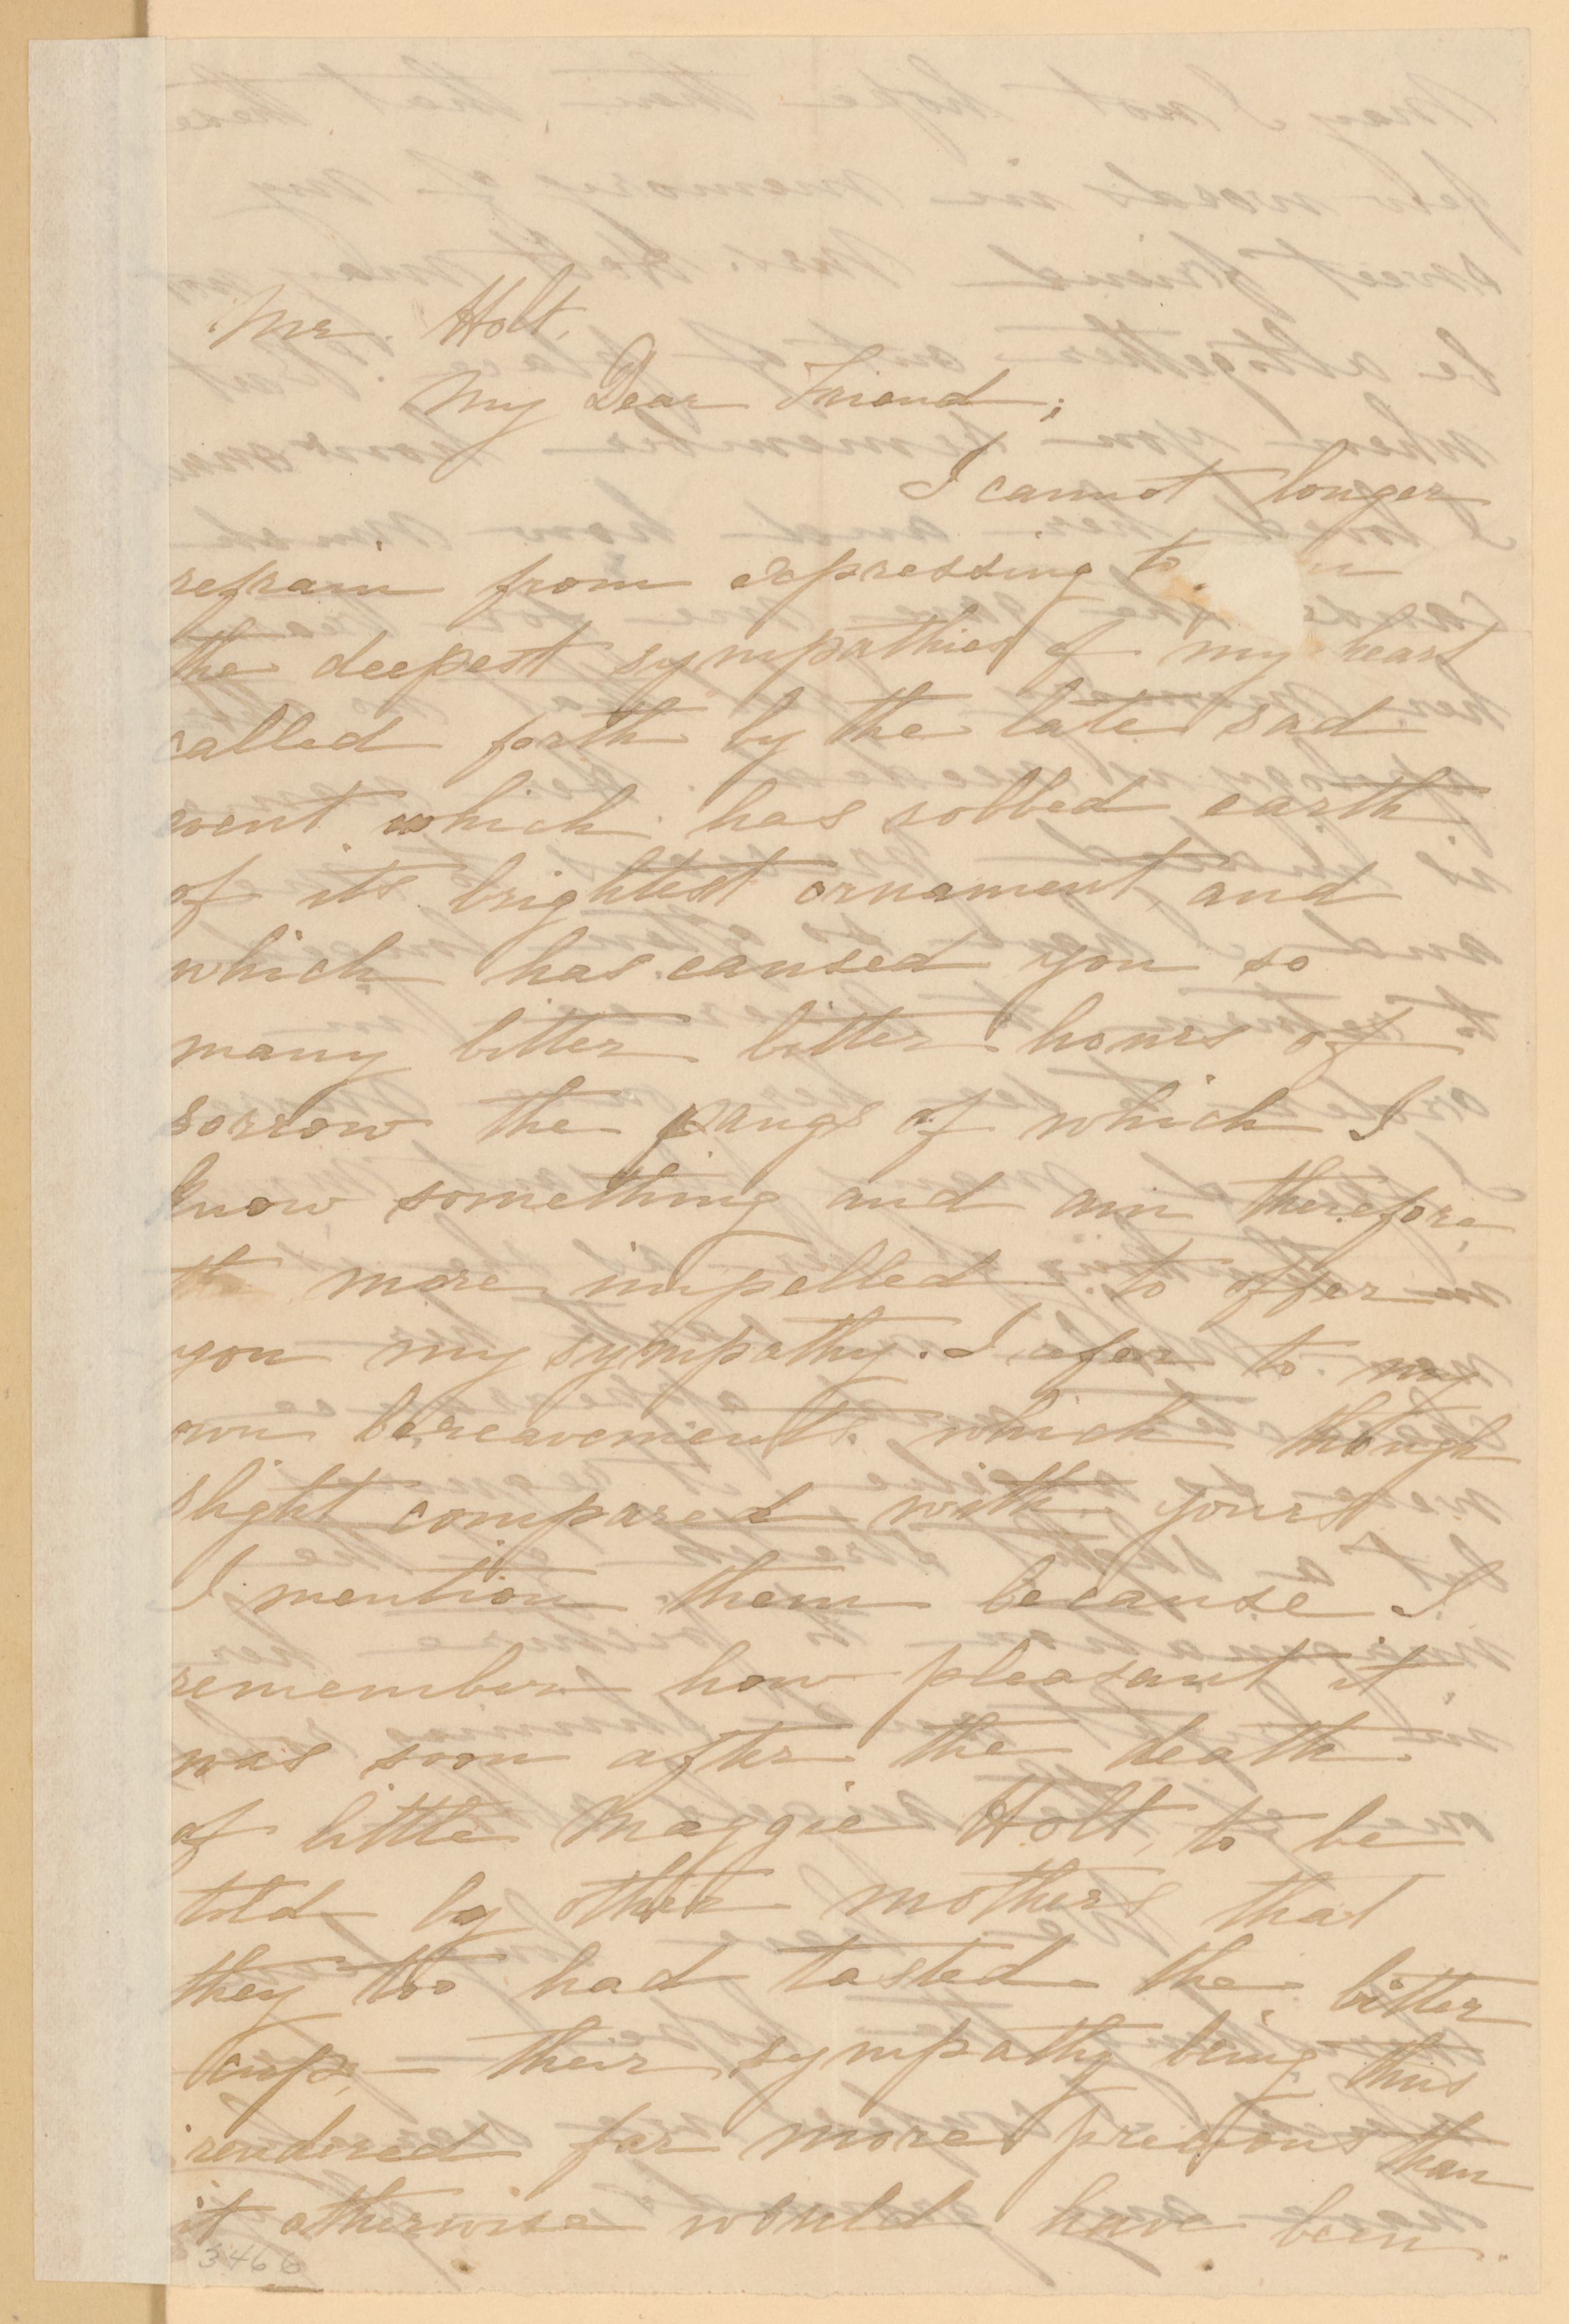 Mr. Holt.
My Dear Friend;
I cannot longer
refrain from expressing to
the deepest sympathies of my heart
called forth by the late sad
event which has robbed earth
of its brightest ornament, and
which has caused you so
many bitter bitter hours of
sorrow the pangs of which I
know something and am therefore
the more impelled to offer
you my sympathy. I refer to my
own bereavements which though
slight compared with yours
I mention them because I
remember how pleasant it
was soon after the death
of little Maggie Holt, to be
told by other mothers that
they too had tasted the bitter
cup, — their sympathy being thus
rendered far more precious than
it otherwise would have been.
3466